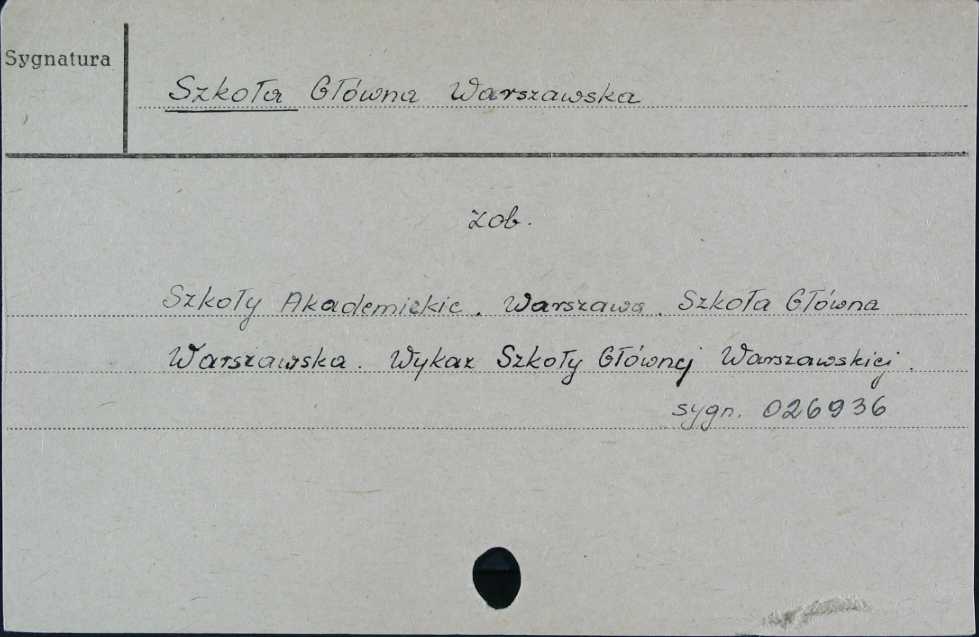 Sygnatura
Szkoła Główna Warszawska
zob.
Szkoły Akademickie. Warszawa. Szkoła Główna
Warszawska. Wykaz Szkoły Głównej Warszawskiej.
sygn. 026936